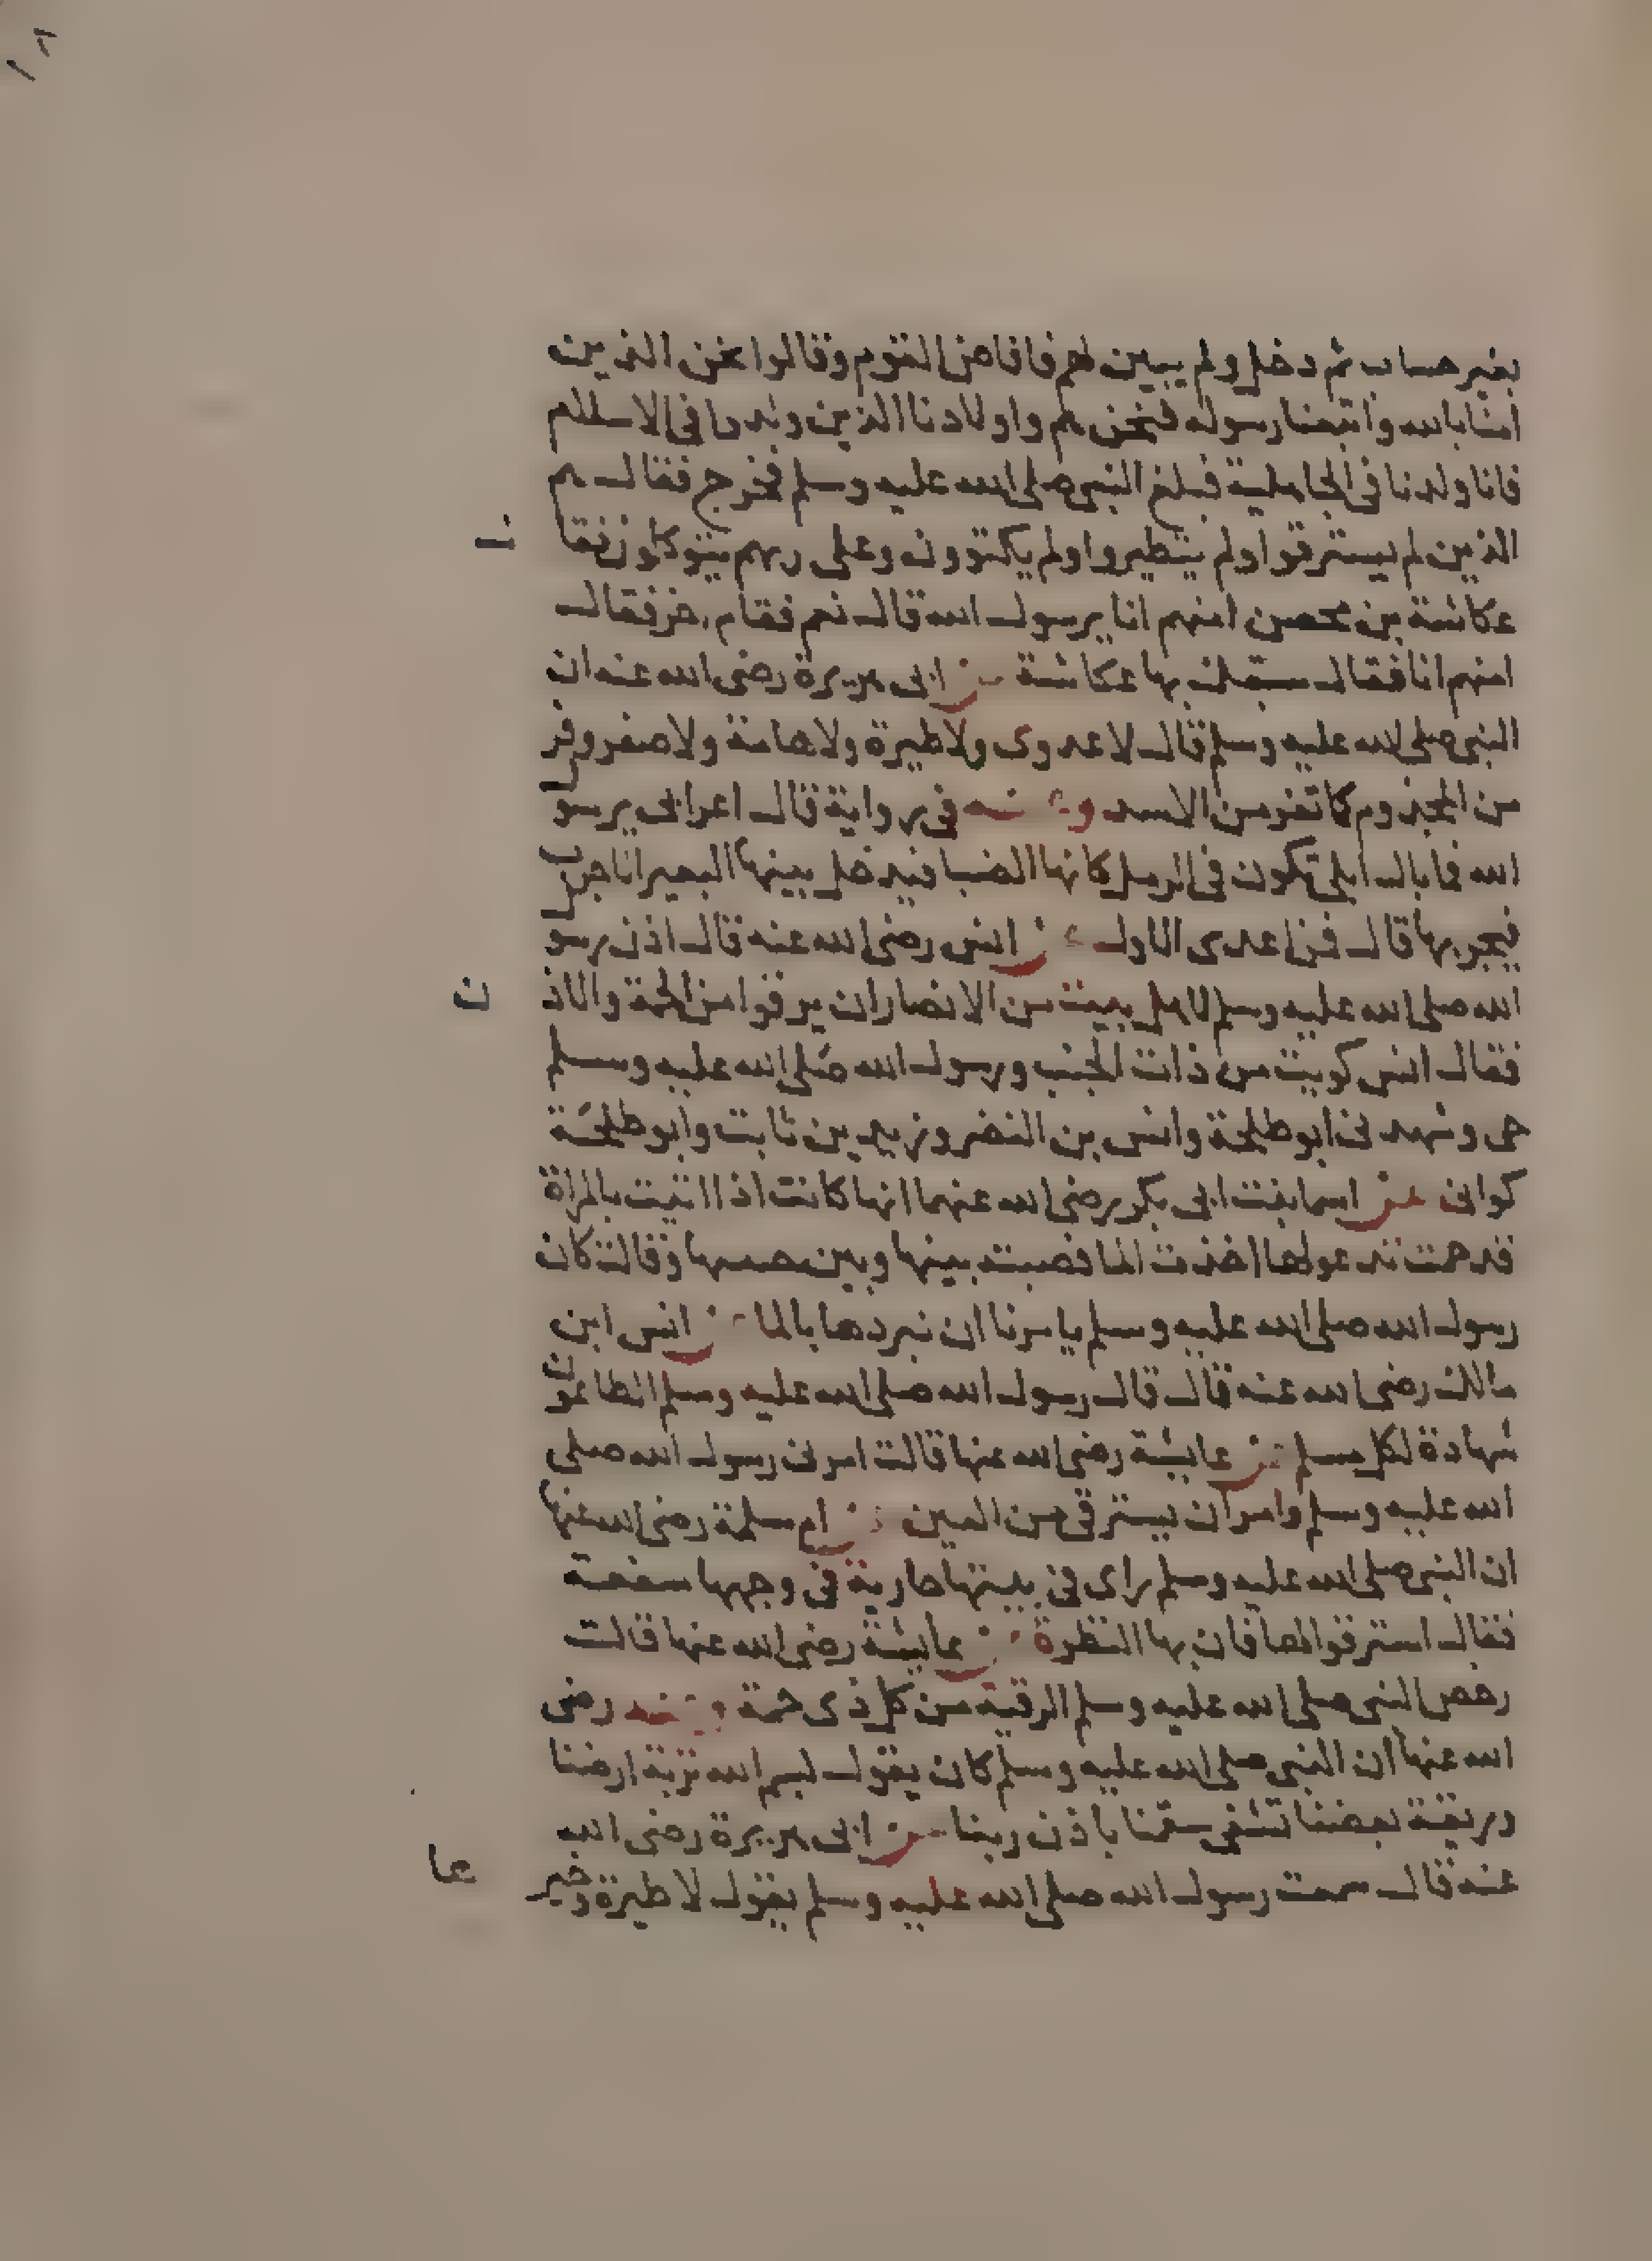 ٨١
بغير حساب ثم دخل ولم يبين لهم فافاض القوم وقالوا نحن الذين
امنا بالله واتبعنا رسوله فنحن هم واولادنا الذين ولدوا فى الاسلام
فانا ولدنا فى الجاهلية فبلغ النبى صلى الله عليه وسلم فخرج فقال هم
الذين لم يسترقوا ولم يتطيروا ولم يكتوون وعلى ربهم يتوكلون فقا
عكاشة بن محصن امنهم انا يرسول الله قال نعم فقام اخر فقال
امنهم انا فقال سبقك بها عكاشة عن ابى هريرة رضى الله عنه ان
النبى صلى الله عليه وسلم قال لا عدوى ولا طيرة ولا هامة ولا صفر وفر
من المجذوم كما تفر من الاسد وعنه فى رواية قال اعرابى يرسول
الله فما بال ابلى تكون فى الرمل كانها الضبا فيدخل بينها البعير الاجرب
فيجربها قال فمن اعدى الاول عن انس رضى الله عنه قال اذن رسول
الله صلى الله عليه وسلم لاهل بيت من الانصار ان يرقوا من الحمة والاذ
ن
فقال انس كويت من ذات الجنب ورسول الله صلى الله عليه وسلم
حى وشهدنى ابو طلحة وانس بن النضر وزيد بن ثابت وابو طلحة
كوانى عن اسما بنت ابى بكر رضى الله عنهما انها كانت اذا اتيت بالمراة
قد حمت تدعو لها اخذت الما فصبته بينها وبين جيبها وقالت كان
رسول الله صلى الله عليه وسلم يامرنا ان نبردها بالما عن انس ابن
مالك رضى الله عنه قال قال رسول الله صلى الله عليه وسلم الطاعون
شهادة لكل مسلم عن عايشة رضى الله عنها قالت امرنى رسول الله صلى
الله عليه وسلم وامر ان يسترقى من العين عن ام سلمة رضى الله عنها
ان النبى صلى الله عليه وسلم راى فى بيتها جارية فى وجهها سفعة
فقال استرقوا لها فان بها النظرة عن عايشة رضى الله عنها قالت
رخص النبى صلى الله عليه وسلم الرقية من كل ذى حمة وعنه رضى
الله عنها ان النبى صلى الله عليه وسلم كان يقول بسم الله تربة ارضنا
وريقة بعضنا تشفى سقمنا باذن ربنا عن ابى هريرة رضى الله
عنه قال سمعت رسول الله صلى الله عليه وسلم يقول لا طيرة وخير
ها